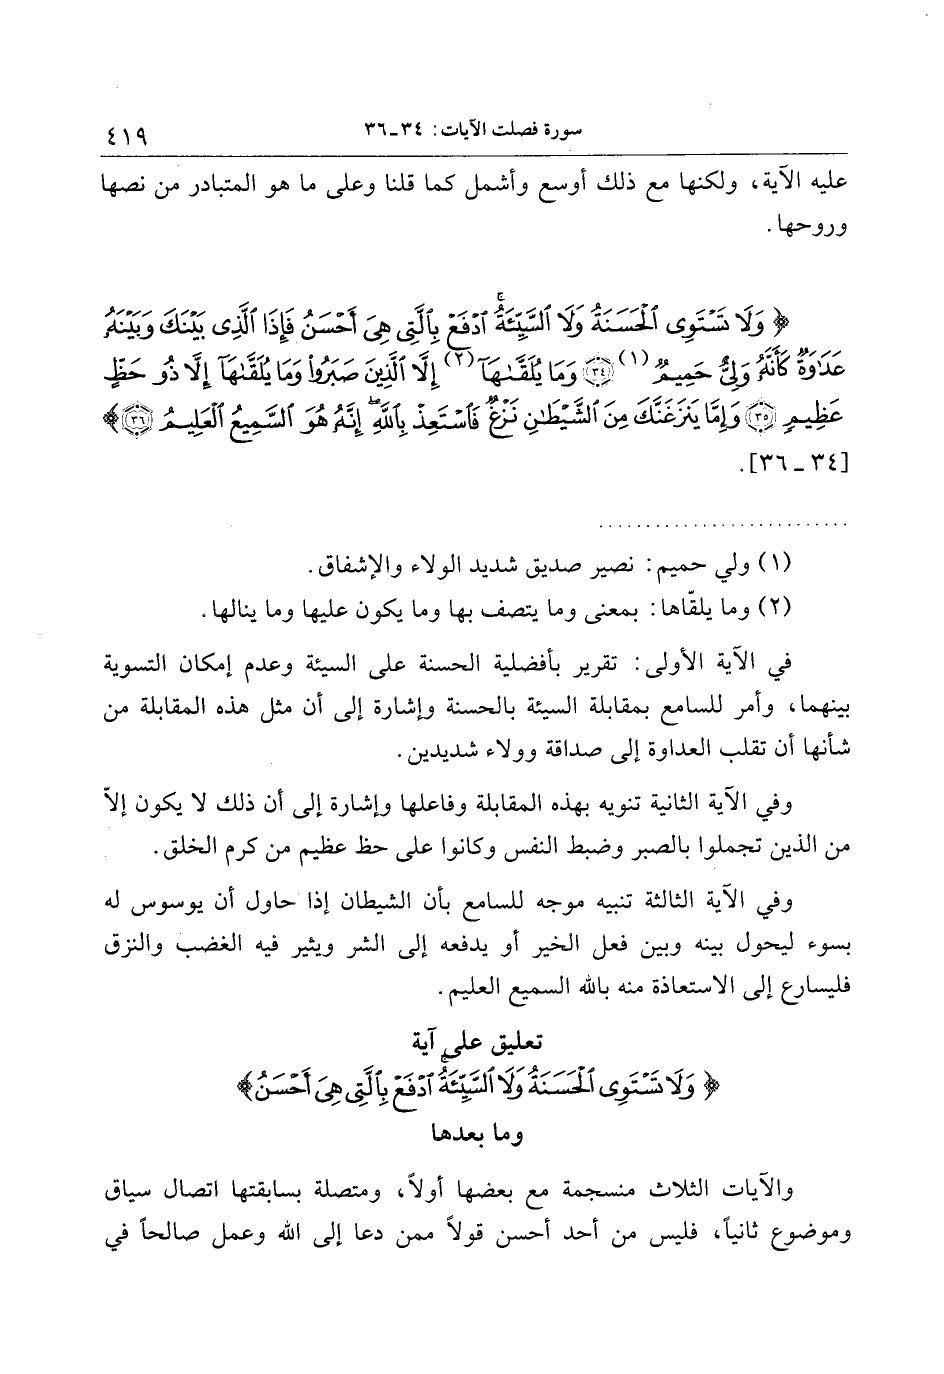 سورة فصلت الآيات: ٣٤ـ٣٦ ٤١٩
عليه الآية، ولكنها مع ذلك أوسع وأشمل كما قلنا وعلى ما هو المتبادر من نصها
وروحها.
﴿ وَلَا تَسْتَوِى ٱلْحَسَنَةُ وَلَا ٱلسَّيِّئَةُ ۚ ٱدْفَعْ بِٱلَّتِى هِىَ أَحْسَنُ فَإِذَا ٱلَّذِى بَيْنَكَ وَبَيْنَهُۥ
عَدَٰوَةٌ كَأَنَّهُۥ وَلِىٌّ حَمِيمٌ (١) ﴿٣٤﴾ وَمَا يُلَقَّىٰهَآ (٢) إِلَّا ٱلَّذِينَ صَبَرُوا۟ وَمَا يُلَقَّىٰهَآ إِلَّا ذُو حَظٍّ
عَظِيمٍ ﴿٣٥﴾ وَإِمَّا يَنزَغَنَّكَ مِنَ ٱلشَّيْطَٰنِ نَزْغٌ فَٱسْتَعِذْ بِٱللَّهِ ۖ إِنَّهُۥ هُوَ ٱلسَّمِيعُ ٱلْعَلِيمُ ﴿٣٦﴾ ﴾
[٣٤ ـ ٣٦].
(١) ولي حميم: نصير صديق شديد الولاء والإشفاق.
(٢) وما يلقّاها: بمعنى وما يتصف بها وما يكون عليها وما ينالها.
في الآية الأولى: تقرير بأفضلية الحسنة على السيئة وعدم إمكان التسوية
بينهما، وأمر للسامع بمقابلة السيئة بالحسنة وإشارة إلى أن مثل هذه المقابلة من
شأنها أن تقلب العداوة إلى صداقة وولاء شديدين.
وفي الآية الثانية تنويه بهذه المقابلة وفاعلها وإشارة إلى أن ذلك لا يكون إلاّ
من الذين تجملوا بالصبر وضبط النفس وكانوا على حظ عظيم من كرم الخلق.
وفي الآية الثالثة تنبيه موجه للسامع بأن الشيطان إذا حاول أن يوسوس له
بسوء ليحول بينه وبين فعل الخير أو يدفعه إلى الشر ويثير فيه الغضب والنزق
فليسارع إلى الاستعاذة منه بالله السميع العليم.
تعليق على آية
﴿ وَلَا تَسْتَوِى ٱلْحَسَنَةُ وَلَا ٱلسَّيِّئَةُ ۚ ٱدْفَعْ بِٱلَّتِى هِىَ أَحْسَنُ ﴾
وما بعدها
والآيات الثلاث منسجمة مع بعضها أولاً، ومتصلة بسابقتها اتصال سياق
وموضوع ثانياً، فليس من أحد أحسن قولاً ممن دعا إلى الله وعمل صالحاً في